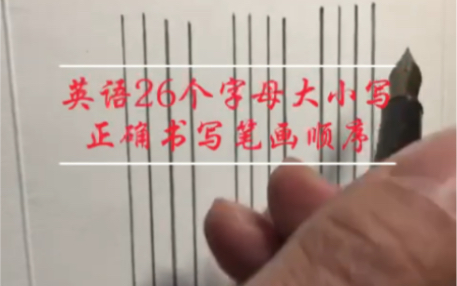 英语26个字母大小写
正确书写笔画顺序